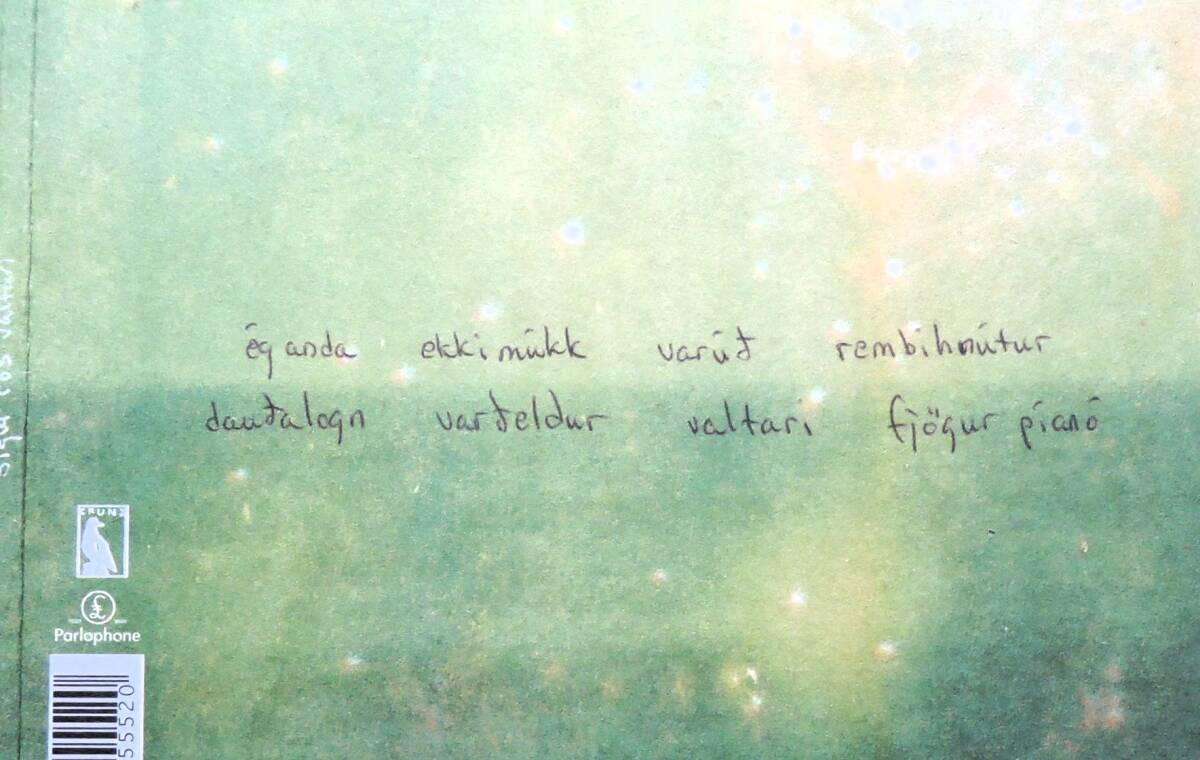 ég anda ekki múkk varúð rembihnútur
dauðalogn varðeldur valtari fjögur píanó
sigur rós valtari
KRUNK
£
Parlophone
55520